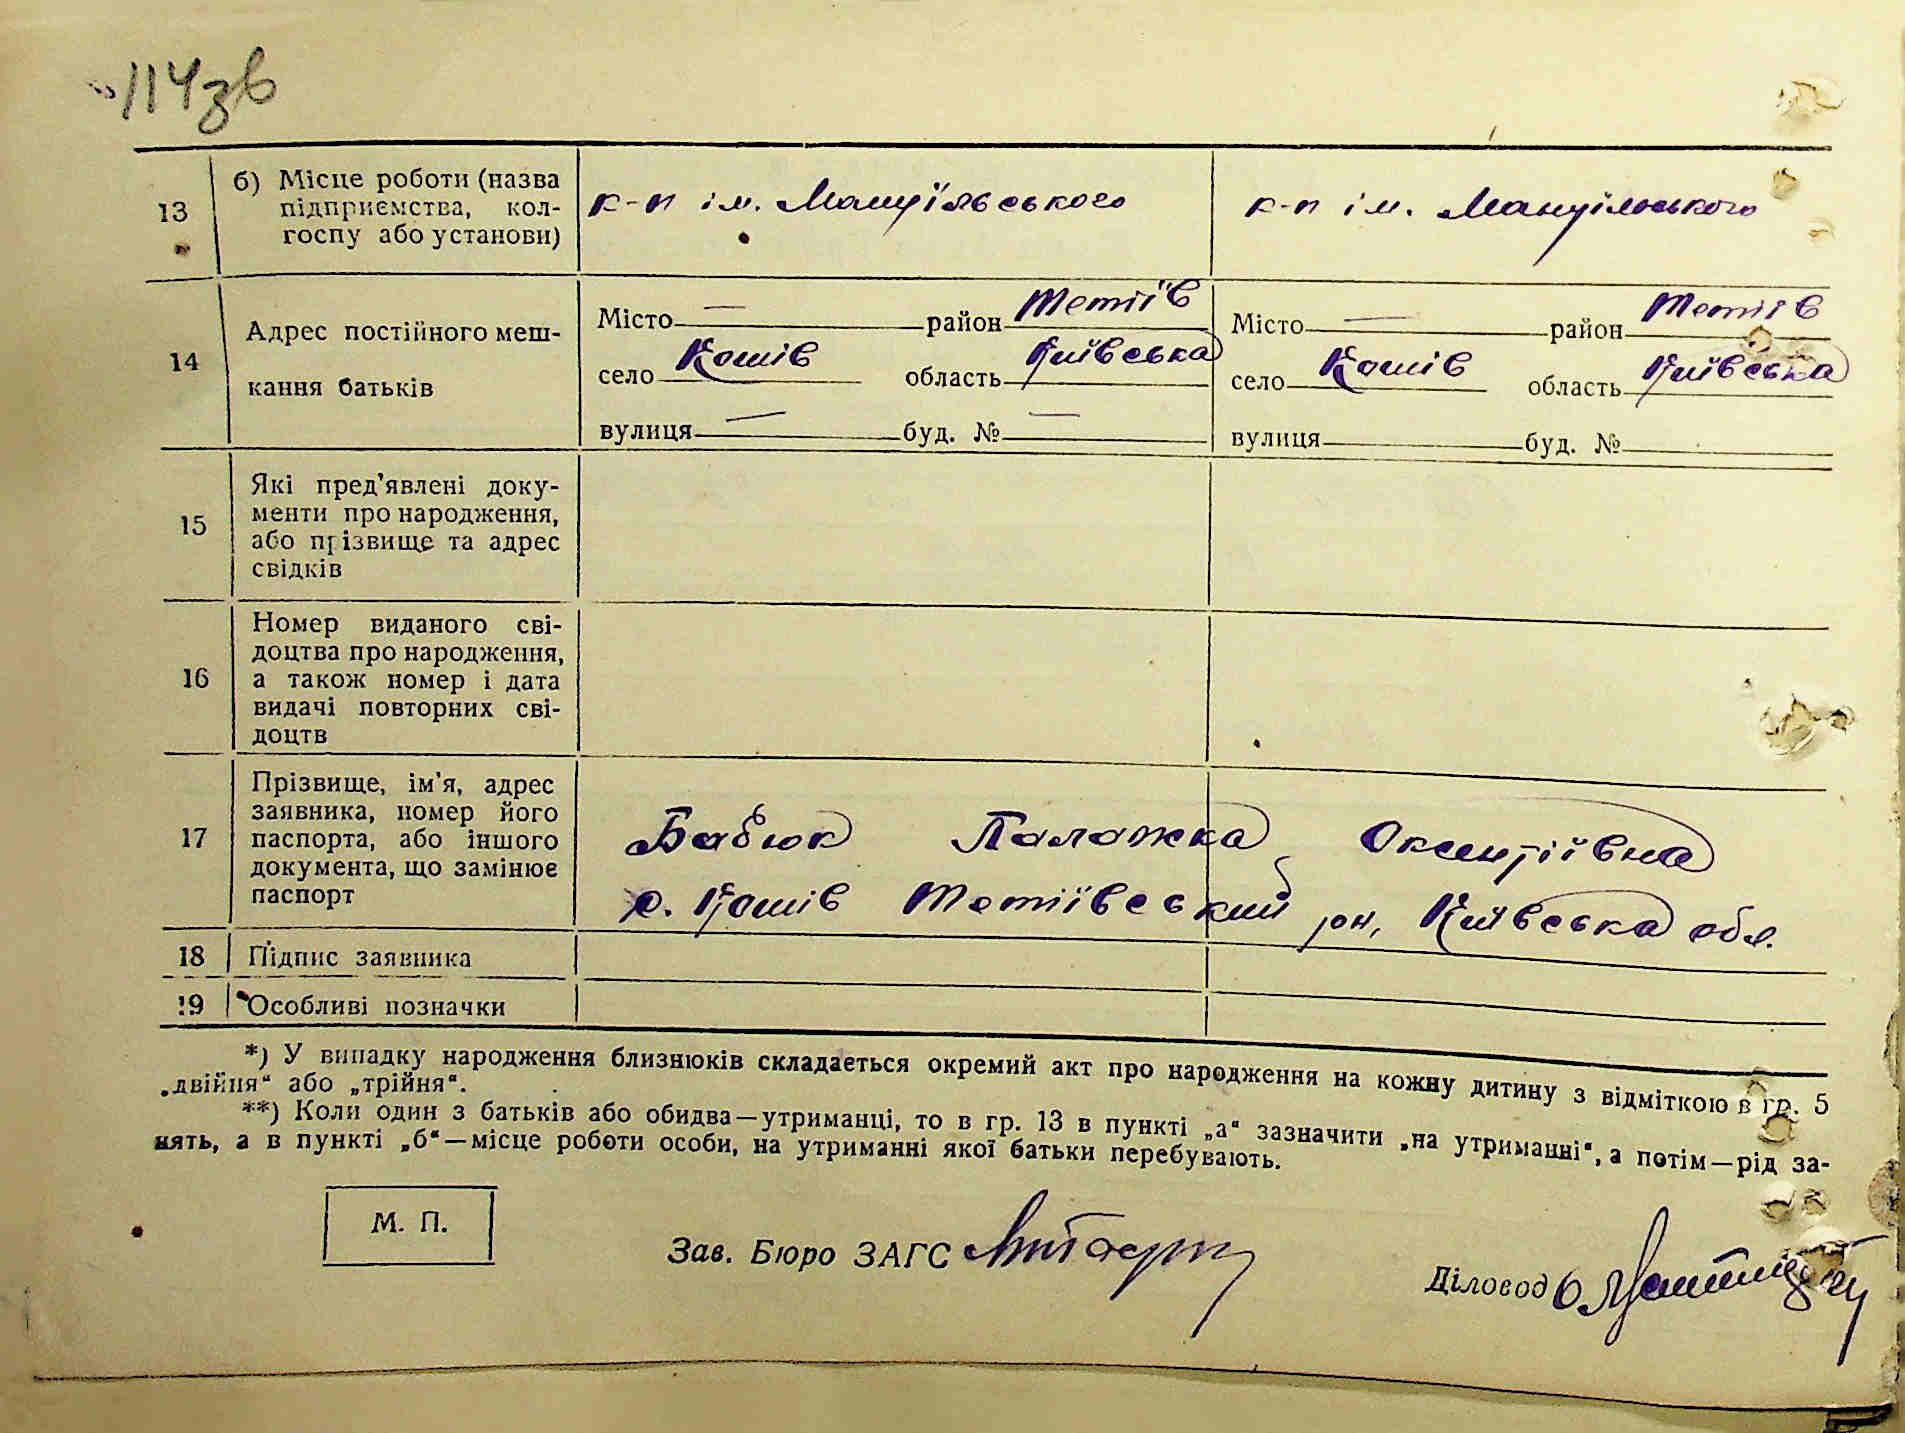 114зв
13
б) Місце роботи (назва
підприємства, кол-
госпу або установи)
к-п ім. Мануїльського
к-п ім. Мануїльського
14
Адрес постійного меш-
кання батьків
Місто — район Тетіїв
село Кошів область Київська
вулиця — буд. № —
Місто — район Тетіїв
село Кошів область Київська
вулиця буд. №
15
Які пред'явлені доку-
менти про народження,
або прізвище та адрес
свідків
16
Номер виданого сві-
доцтва про народження,
а також номер і дата
видачі повторних сві-
доцтв
17
Прізвище, ім'я, адрес
заявника, номер його
паспорта, або іншого
документа, що замінює
паспорт
Бабюк Палажка Оксентіївна
с. Кошів Тетіївський рн, Київська обл.
18 Підпис заявника
19 Особливі позначки
*) У випадку народження близнюків складається окремий акт про народження на кожну дитину з відміткою в гр. 5
„двійня“ або „трійня“.
**) Коли один з батьків або обидва—утриманці, то в гр. 13 в пункті „а“ зазначити „на утриманні“, а потім—рід за-
нять, а в пункті „б“—місце роботи особи, на утриманні якої батьки перебувають.
М. П.
Зав. Бюро ЗАГС
Діловод